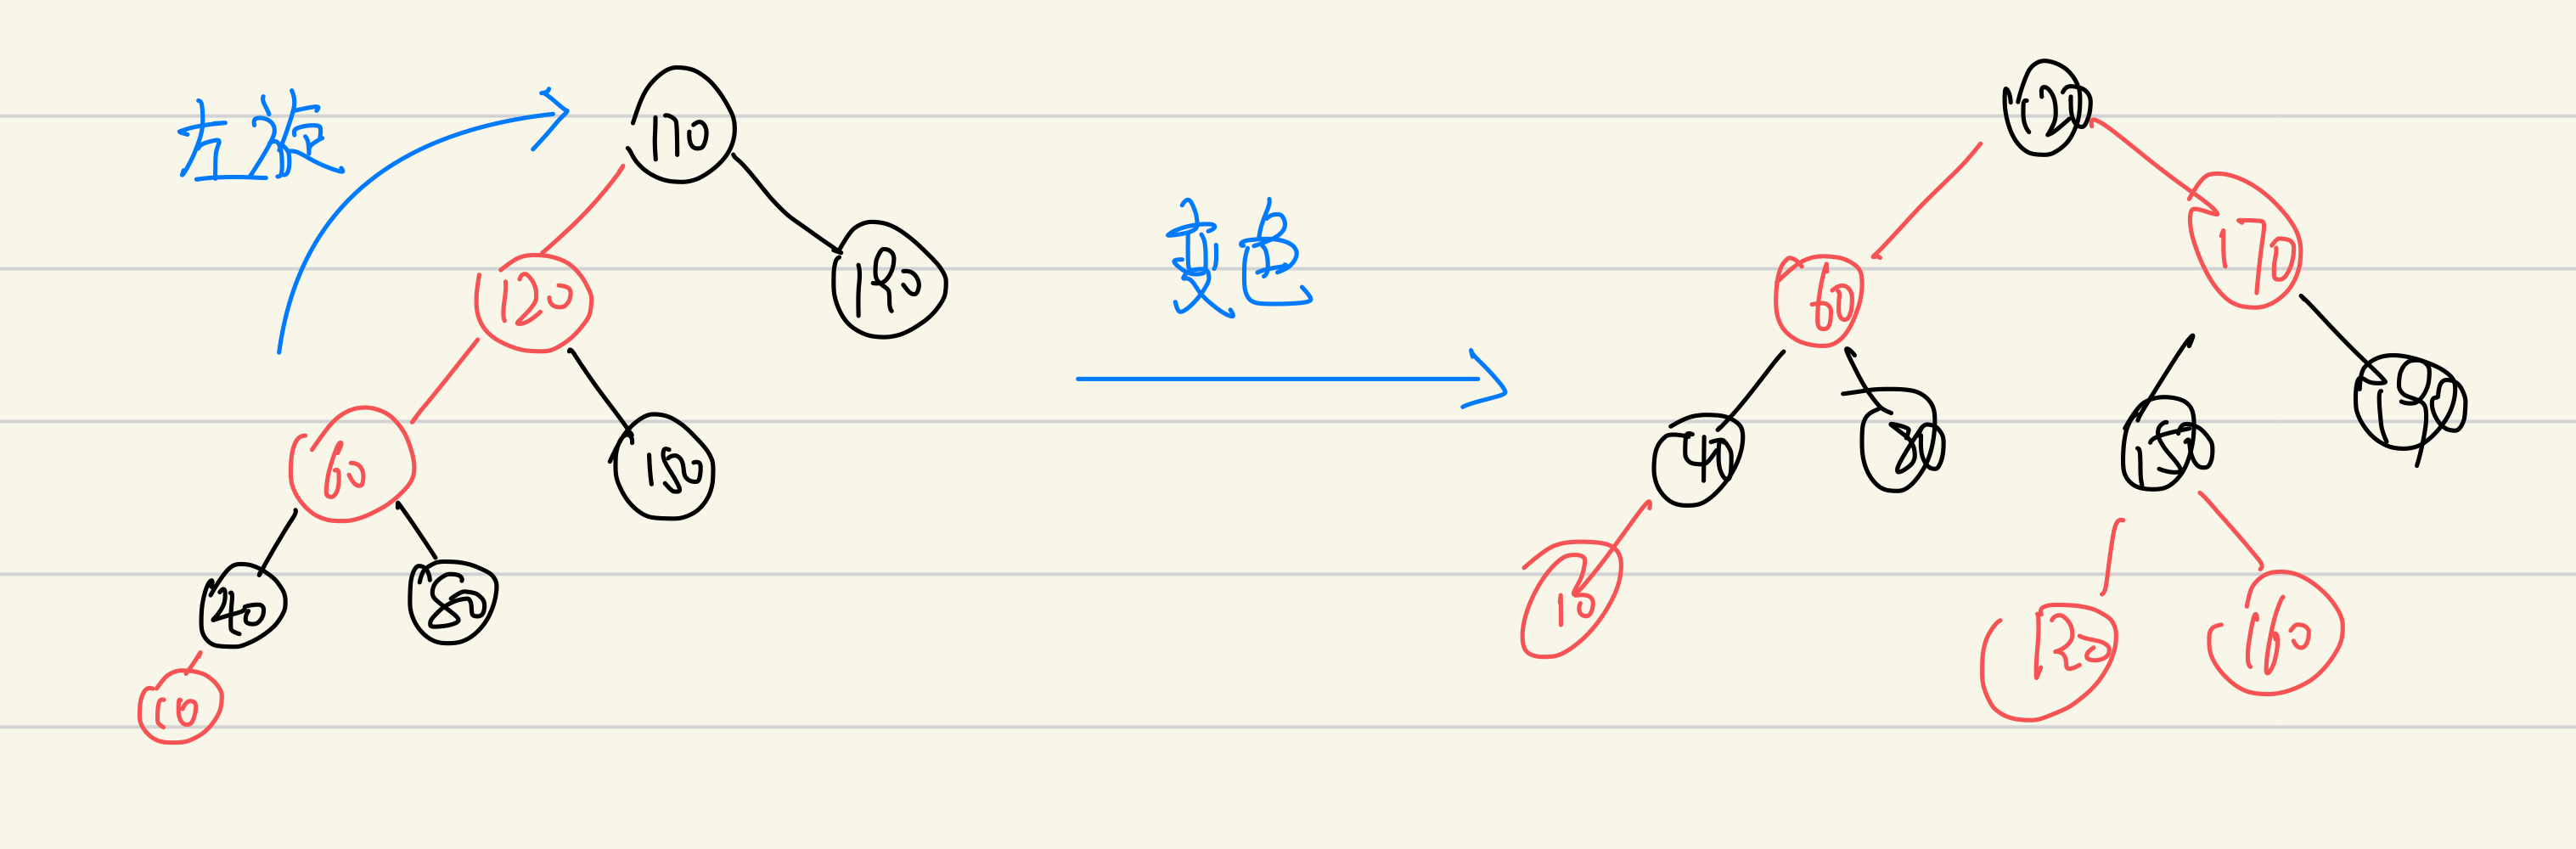 左旋
170
120
190
60
150
40
80
10
变色
120
60
170
40
80
150
190
10
130
160